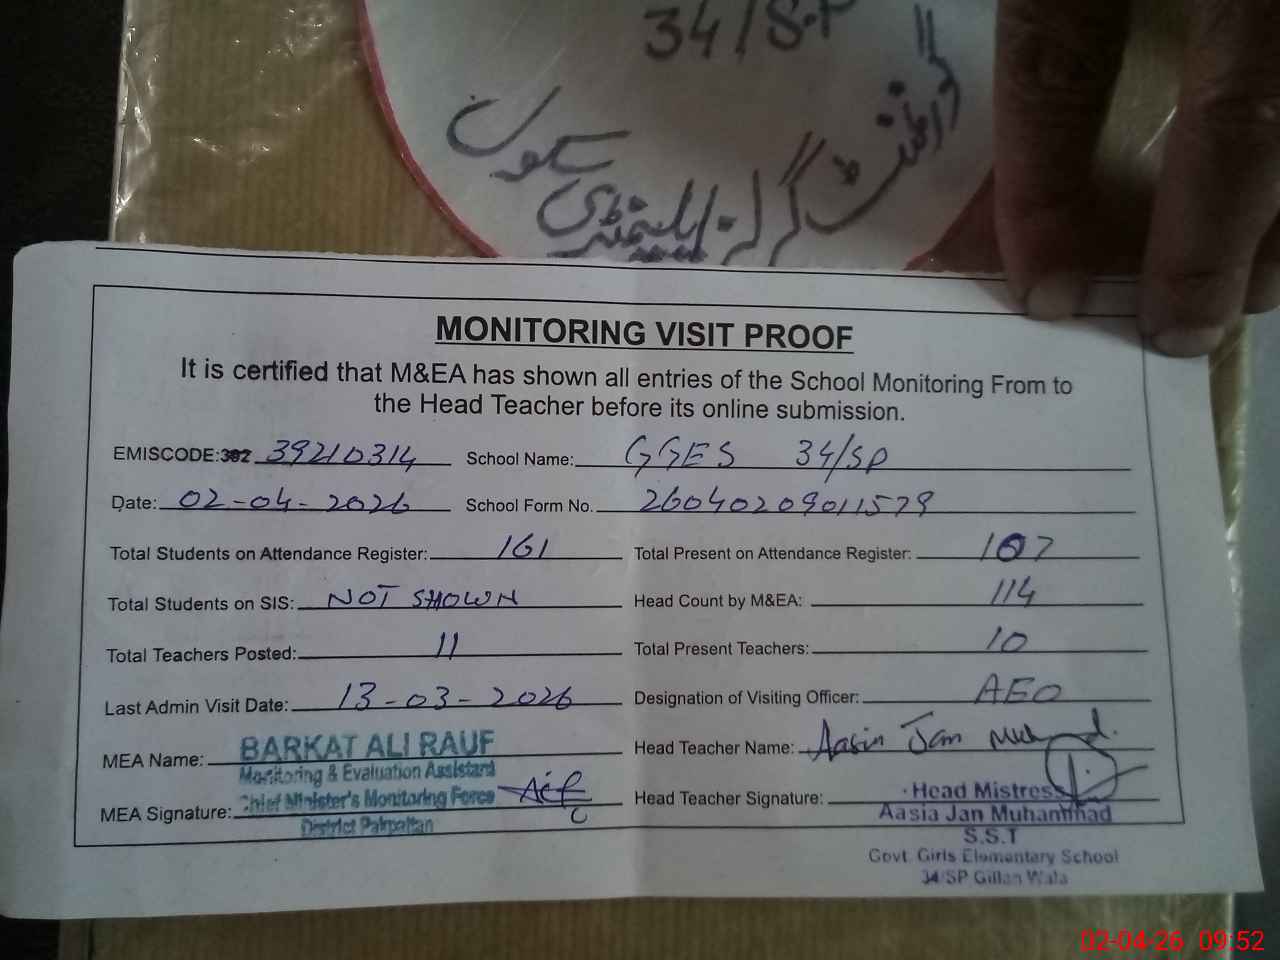 34/S.P
گورنمنٹ گرلز ایلیمنٹری سکول
MONITORING VISIT PROOF
It is certified that M&EA has shown all entries of the School Monitoring From to
the Head Teacher before its online submission.
EMISCODE:392 39210314 School Name: GGES 34/SP
Date: 02-04-2026 School Form No. 26040209011579
Total Students on Attendance Register: 161 Total Present on Attendance Register: 107
Total Students on SIS: NOT SHOWN Head Count by M&EA: 114
Total Teachers Posted: 11 Total Present Teachers: 10
Last Admin Visit Date: 13-03-2026 Designation of Visiting Officer: AEO
MEA Name: BARKAT ALI RAUF Head Teacher Name: Aasia Jan Muhammad
Monitoring & Evaluation Assistant
MEA Signature: Chief Minister's Monitoring Force Head Teacher Signature: Head Mistress
District Pakpattan Aasia Jan Muhammad
S.S.T
Govt. Girls Elementary School
34/SP Gillan Wala
02-04-26 09:52